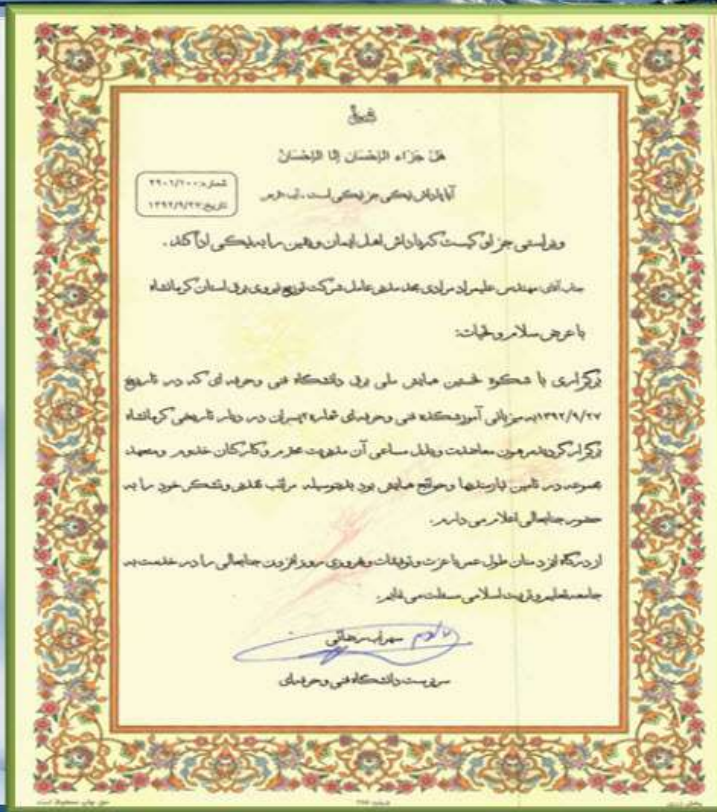 هَلْ جَزَاء الْإِحْسَانِ إِلَّا الْإِحْسَانُ
آیا پاداش نیکی جز نیکی است
شماره: ۲۹۰۱/۱۰۰
تاریخ: ۱۳۹۲/۹/۲۷
و براستی جز او کیست که پاداش اهل ایمان و یقین را به نیکی ادا کند.
جناب آقای مهندس علیمراد مرادی مدیر عامل شرکت توزیع نیروی برق استان کرمانشاه
با عرض سلام و تحیات:
برگزاری با شکوه نخستین همایش ملی برق دانشگاه فنی و حرفه ای که در تاریخ
۱۳۹۲/۹/۲۷ به میزبانی آموزشکده فنی و حرفه ای شماره ۲ پسران در دیار تاریخی کرمانشاه
برگزار گردید مرهون معاضدت و بذل مساعی آن مدیریت محترم و کارکنان خدوم و متعهد
مجموعه در تامین نیازمندیها و حوائج همایش بود بدینوسیله مراتب تقدیر و تشکر خود را به
حضور جنابعالی اعلام می دارم.
از درگاه ایزد منان طول عمر با عزت و توفیقات و بهروزی روز افزون جنابعالی را در خدمت به
جامعه تعلیم و تربیت اسلامی مسئلت می نمایم.
سرپرست دانشگاه فنی و حرفه ای